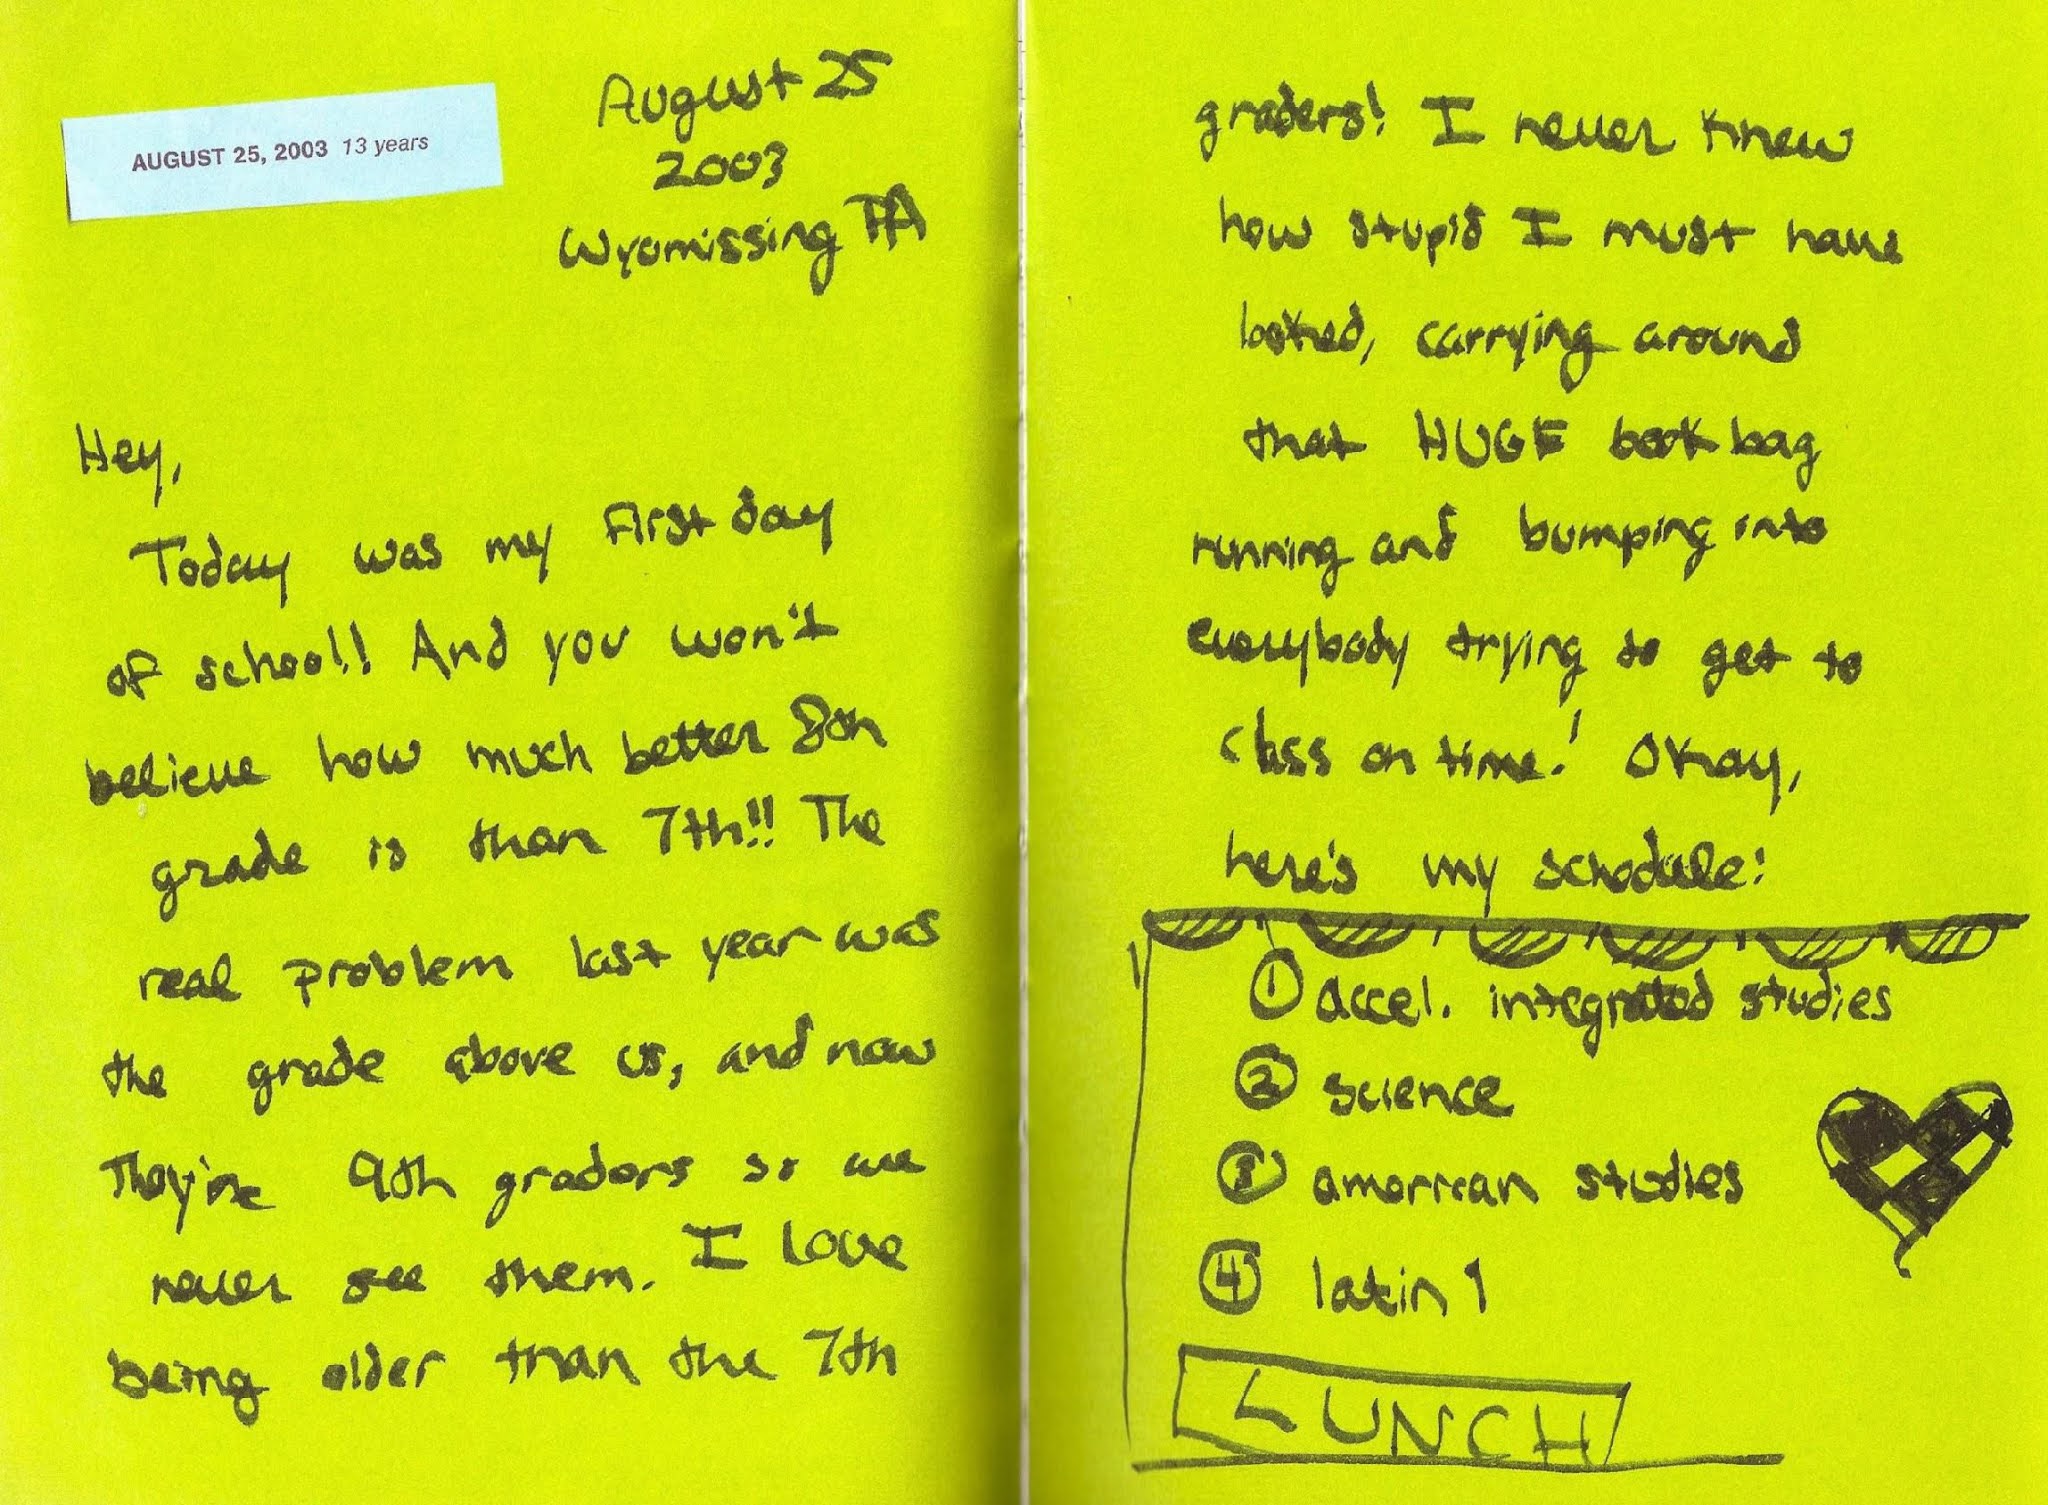 AUGUST 25, 2003 13 years
August 25
2003
Wyomissing PA
Hey,
Today was my first day
of school!! And you won't
believe how much better 8th
grade is than 7th!! The
real problem last year was
the grade above us, and now
They're 9th graders so we
never see them. I love
being older than the 7th
graders! I never knew
how stupid I must have
looked, carrying around
that HUGE book bag
running and bumping into
everybody trying to get to
class on time! Okay,
here's my schedule:
1 accel. integrated studies
2 science
3 american studies
4 latin 1
LUNCH